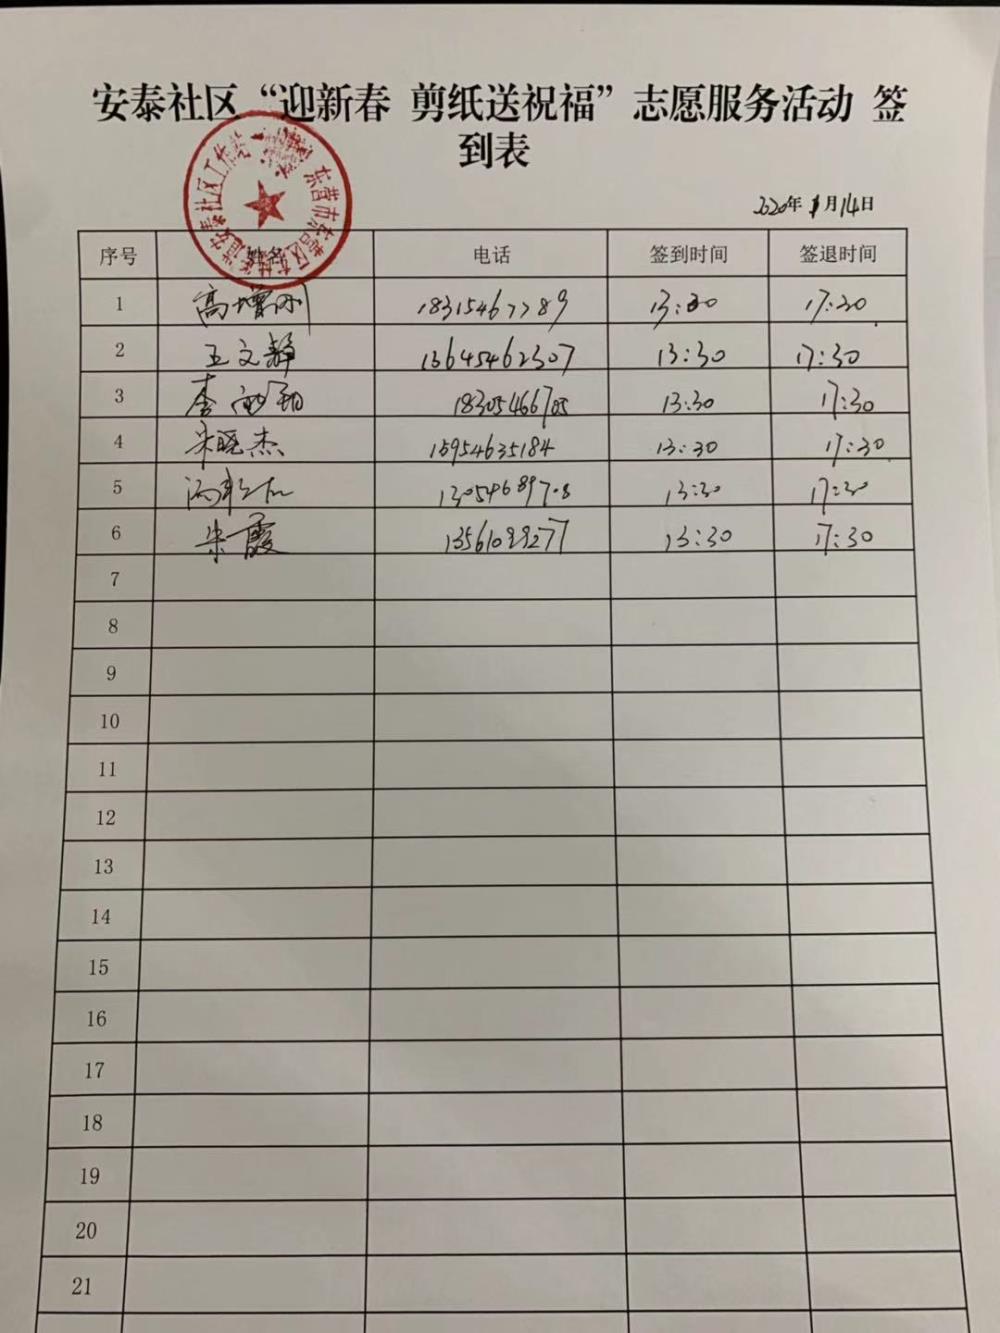 安泰社区“迎新春 剪纸送祝福”志愿服务活动 签
到表
2020年1月14日
序号 姓名 电话 签到时间 签退时间
1 高增刚 18315467789 13:30 17:30
2 王文静 13645462307 13:30 17:30
3 李 13:30 17:30
4 宋晓杰 15954635184 13:30 17:30
5 13:30 17:30
6 朱霞 13:30 17:30
7
8
9
10
11
12
13
14
15
16
17
18
19
20
21